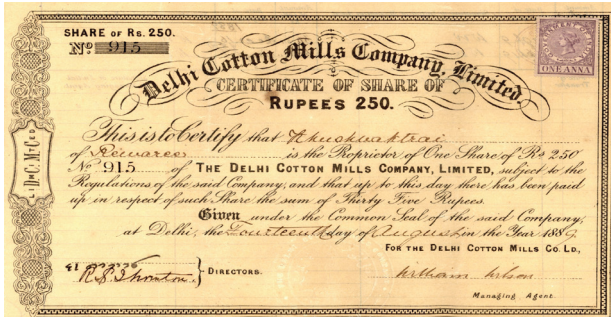 SHARE OF RS. 250.
No 915
Delhi Cotton Mills Company, Limited
CERTIFICATE OF SHARE OF
RUPEES 250.
ONE ANNA
This is to Certify that Khushwaktrai
of Rewaree is the Proprietor of One Share of Rs 250
No 915 of THE DELHI COTTON MILLS COMPANY, LIMITED, subject to the
Regulations of the said Company, and that up to this day there has been paid
up in respect of such Share the sum of Thirty Five Rupees.
Given under the Common Seal of the said Company,
at Delhi, the Fourteenth day of August in the Year 1889.
FOR THE DELHI COTTON MILLS CO. LD.,
DIRECTORS.
Managing Agent.